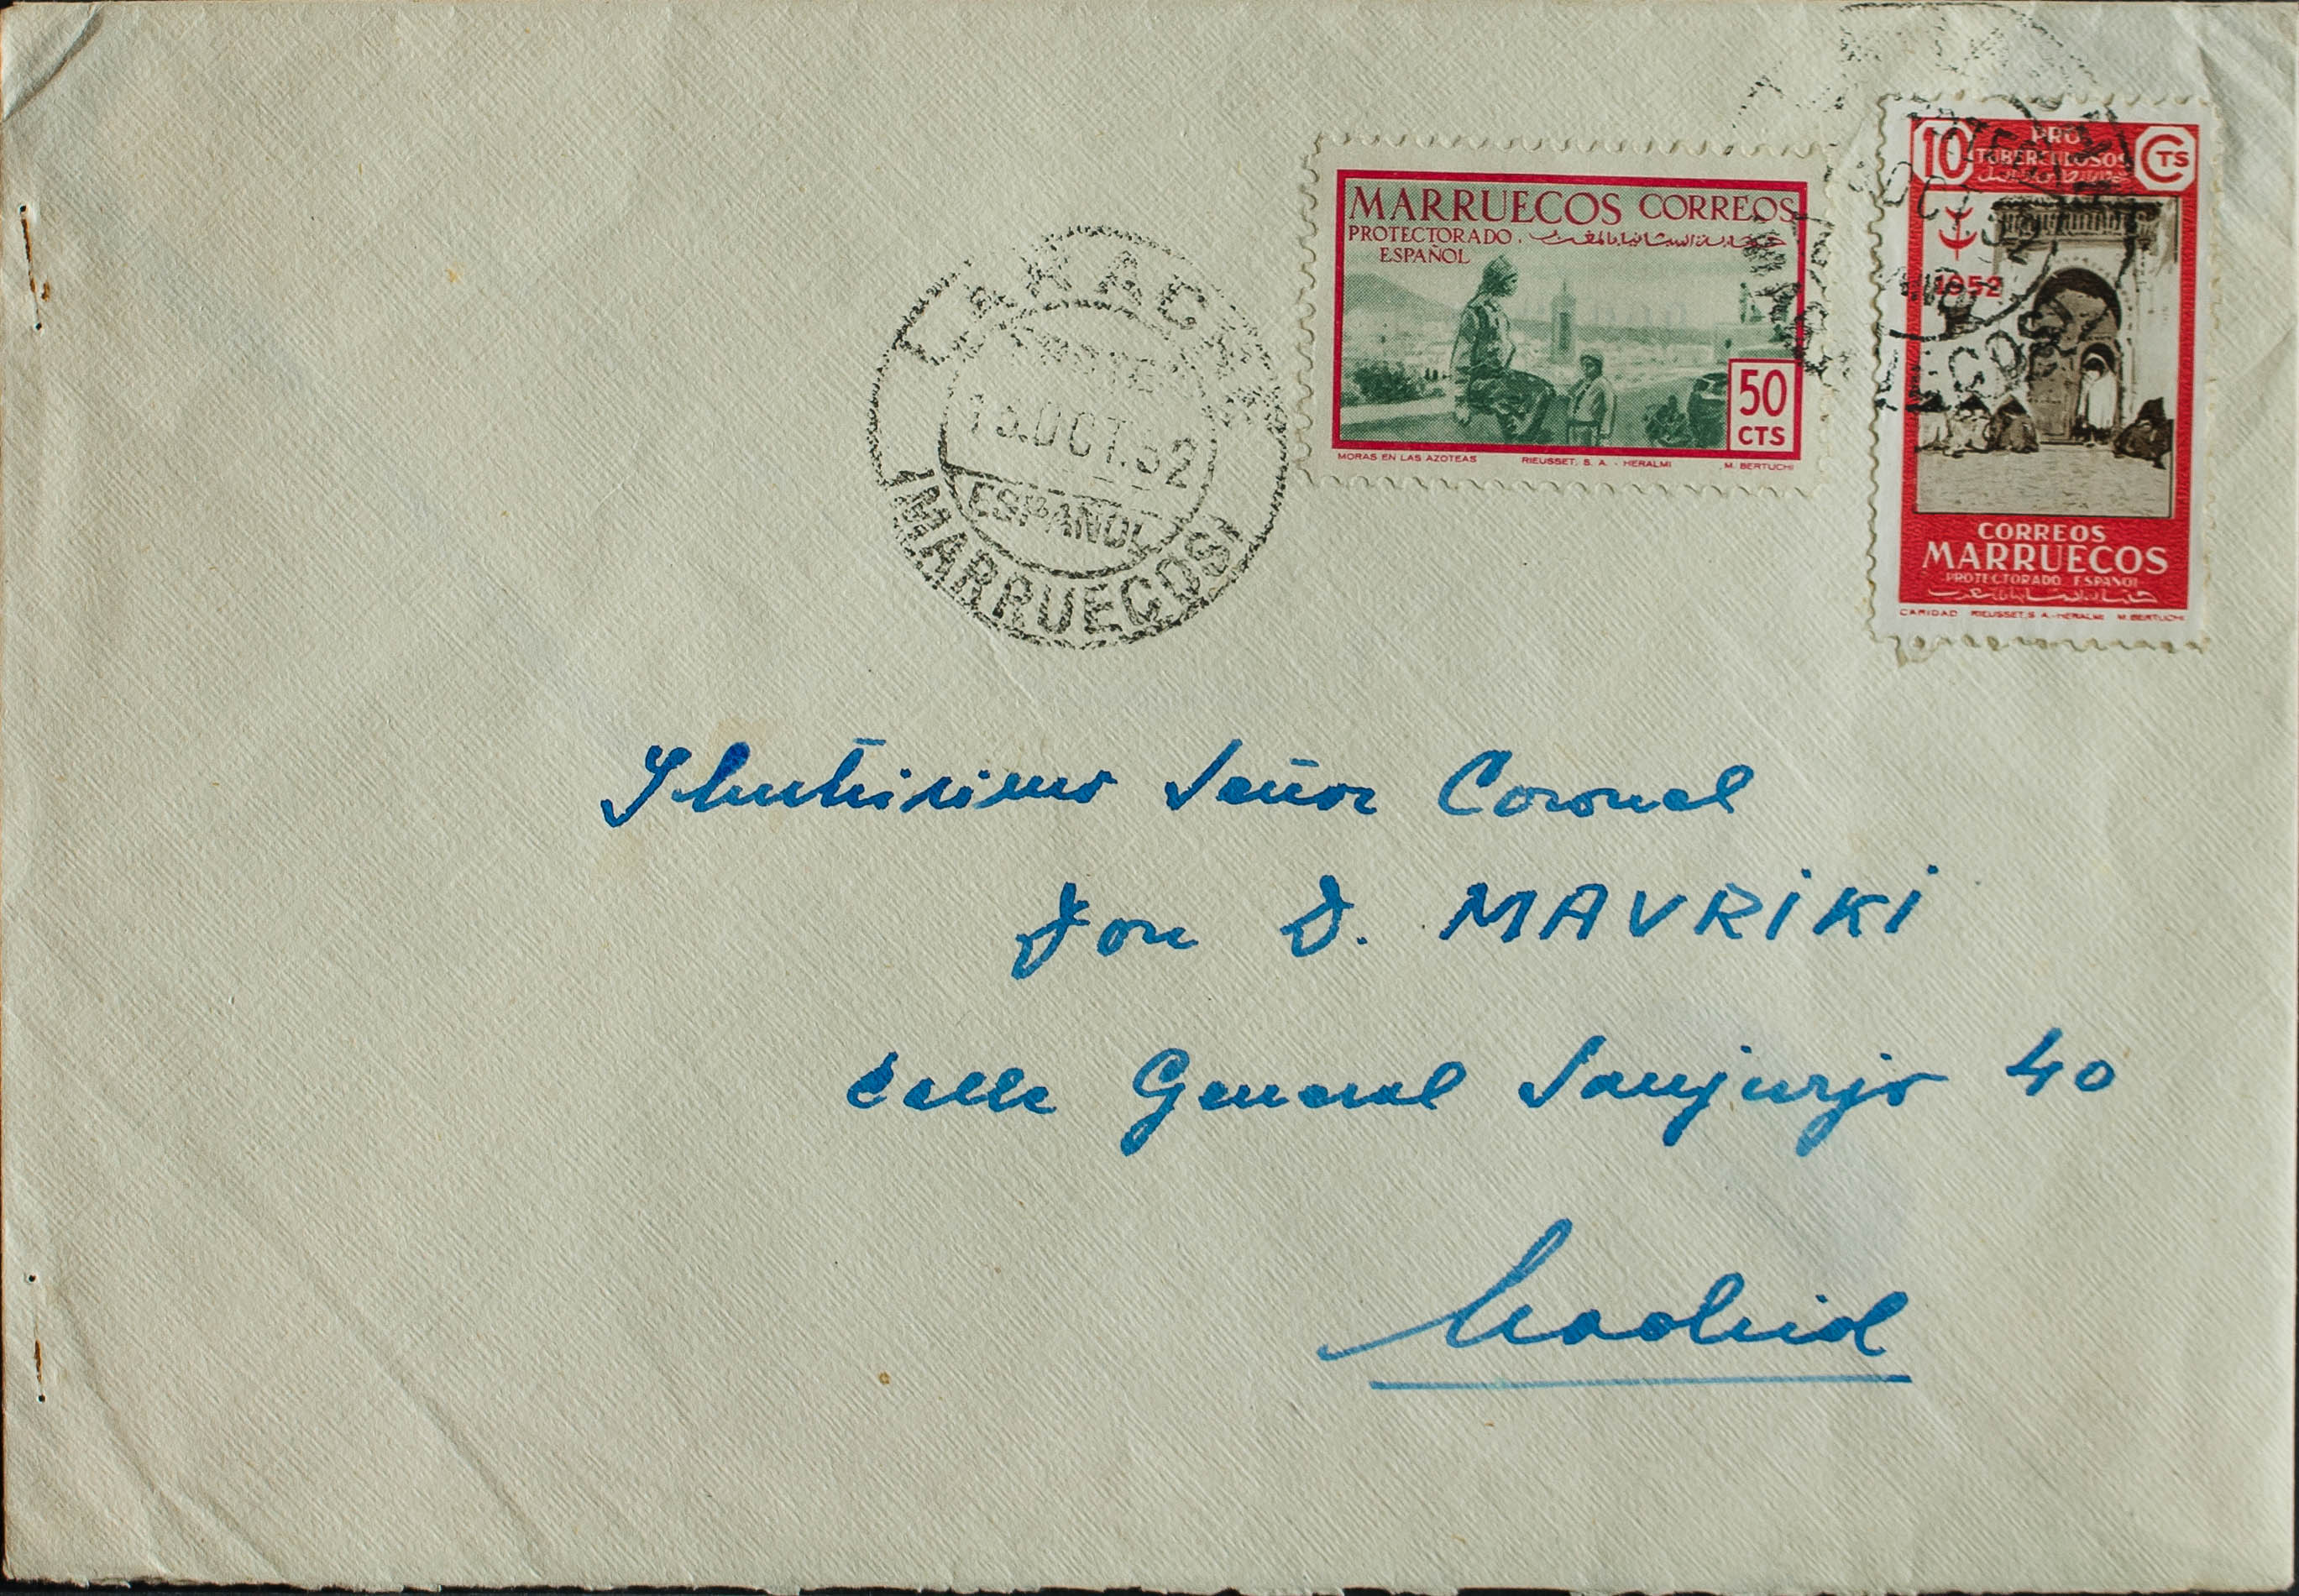 LARACHE
13.OCT.52
ESPAÑOL
(MARRUECOS)
MARRUECOS CORREOS
PROTECTORADO
ESPAÑOL
50
CTS
MORAS EN LAS AZOTEAS RIEUSSET, S. A. - HERALMI M. BERTUCHI
10 PRO CTS
TUBERCULOSOS
1952
CORREOS
MARRUECOS
PROTECTORADO ESPAÑOL
CARIDAD RIEUSSET, S. A.-HERALMI M. BERTUCHI
Ilustrisimo Señor Coronel
Don D. MAVRIKI
Calle General Sanjurjo 40
Madrid